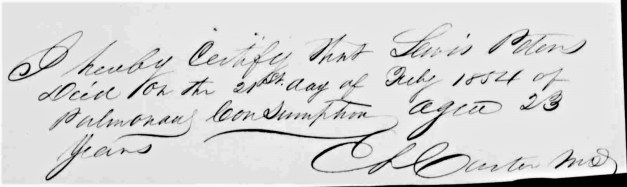 I hereby Certify that Lewis Peters
Died on the 21st day of Feby 1884 of
Pulmonary Consumption aged 23
Years
C L Carter MD